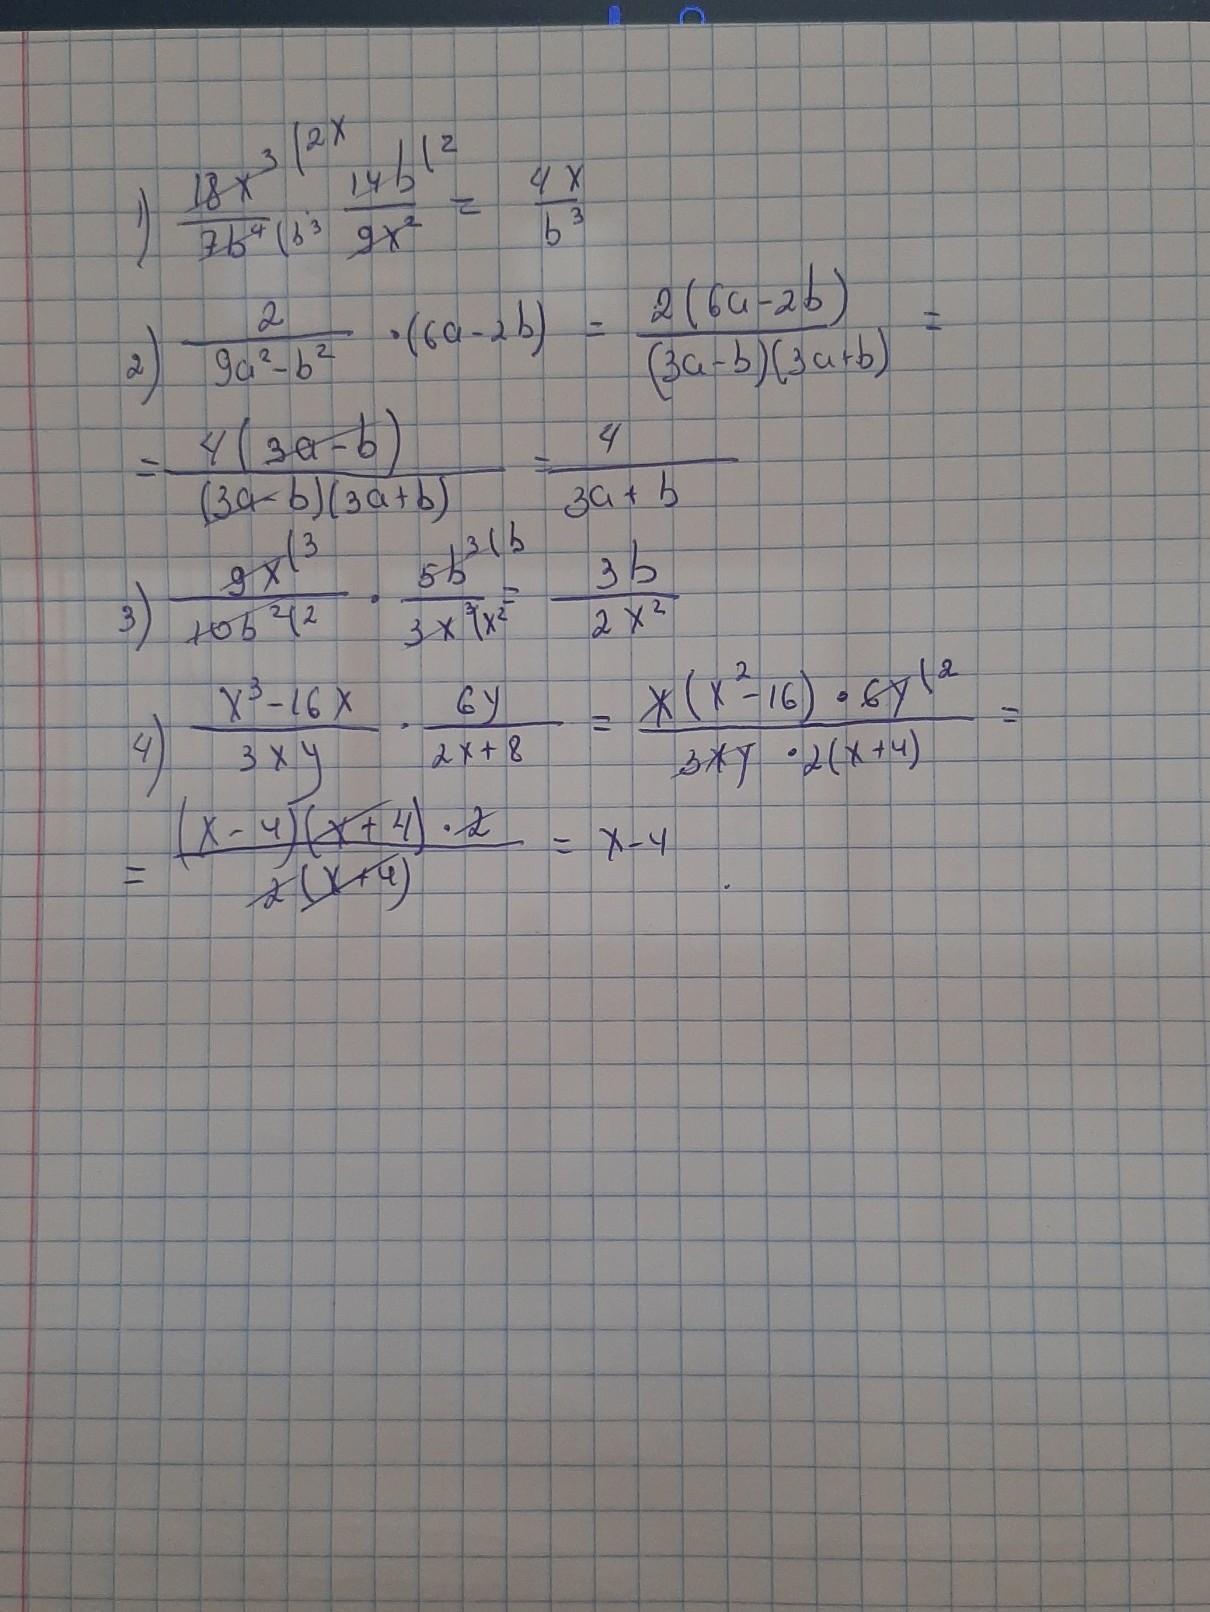 1) 18x³(2x / 7b⁴(b³ · 14b(2 / 9x² = 4x / b³
2) 2 / 9a²-b² · (6a-2b) = 2(6a-2b) / (3a-b)(3a+b) =
= 4(3a-b) / (3a-b)(3a+b) = 4 / 3a+b
3) 9x(3 / 10b²(2 · 5b³(b / 3x³(x² = 3b / 2x²
4) x³-16x / 3xy · 6y / 2x+8 = x(x²-16)·6y(2 / 3xy·2(x+4) =
= (x-4)(x+4)·2 / 2(x+4) = x-4